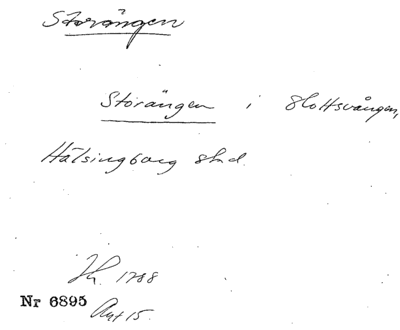 Storängen
Storängen i Slottsvången,
Hälsingborg stad.
1788
Nr 6895
Akt 15.